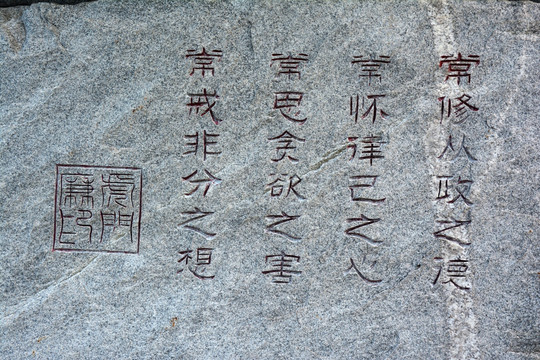 常修从政之德
常怀律己之心
常思贪欲之害
常戒非分之想
虎門
廉印